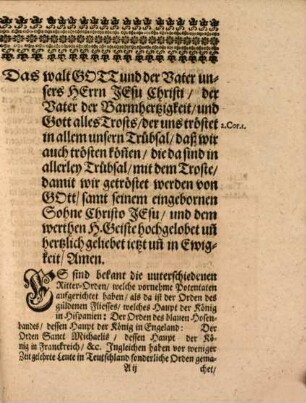 Das walt GOTT und der Vater un-
sers HErrn JEsu Christi / der
Vater der Barmhertzigkeit / und
Gott alles Trosts / der uns tröstet
2. Cor. 1.
in allem unsern Trübsal / daß wir
auch trösten köñen / die da sind in
allerley Trübsal / mit dem Troste /
damit wir getröstet werden von
GOtt / samt seinem eingebornen
Sohne Christo JEsu / und dem
werthen H. Geiste hochgelobet uñ
hertzlich geliebet ietzt uñ in Ewig-
keit / Amen.
ES sind bekant die unterschiedenen
Ritter-Orden / welche vornehme Potentaten
aufgerichtet haben / als da ist der Orden des
güldenen Fliesses / welches Haupt der König
in Hispanien: Der Orden des blauen Hosen-
bandes / dessen Haupt der König in Engeland: Der
Orden Sanct Michaelis / dessen Haupt der Kö-
nig in Franckreich / &c. Ingleichen haben vor weniger
Zeit gelehrte Leute in Teutschland sonderliche Orden gema-
A ij
chet /